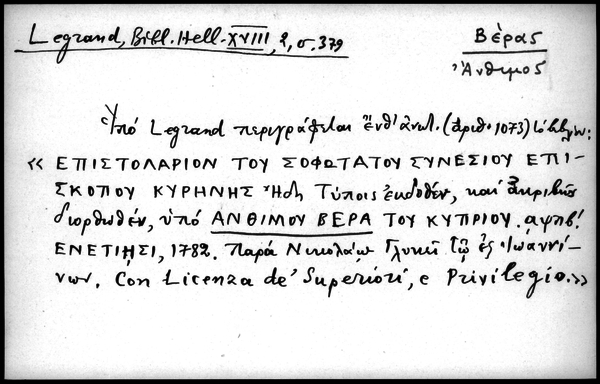 Legrand, Bibl. Hell. XVIII, 2, σ. 379
Βέρας
Ἄνθιμος
Ὑπό Legrand περιγράφεται ἔνθ' ἀνωτ. (ἀριθ. 1073) τό βιβλίον:
« ΕΠΙΣΤΟΛΑΡΙΟΝ ΤΟΥ ΣΟΦΩΤΑΤΟΥ ΣΥΝΕΣΙΟΥ ΕΠΙ-
ΣΚΟΠΟΥ ΚΥΡΗΝΗΣ Ἤδη Τύποις ἐκδοθέν, καί ἀκριβῶς
διορθωθέν, ὑπό ΑΝΘΙΜΟΥ ΒΕΡΑ ΤΟΥ ΚΥΠΡΙΟΥ. αψπβ!
ΕΝΕΤΙΗΣΙ, 1782. Παρά Νικολάῳ Γλυκεῖ τῷ ἐξ Ἰωαννί-
νων. Con Licenza de' Superiori, e Privilegio.»